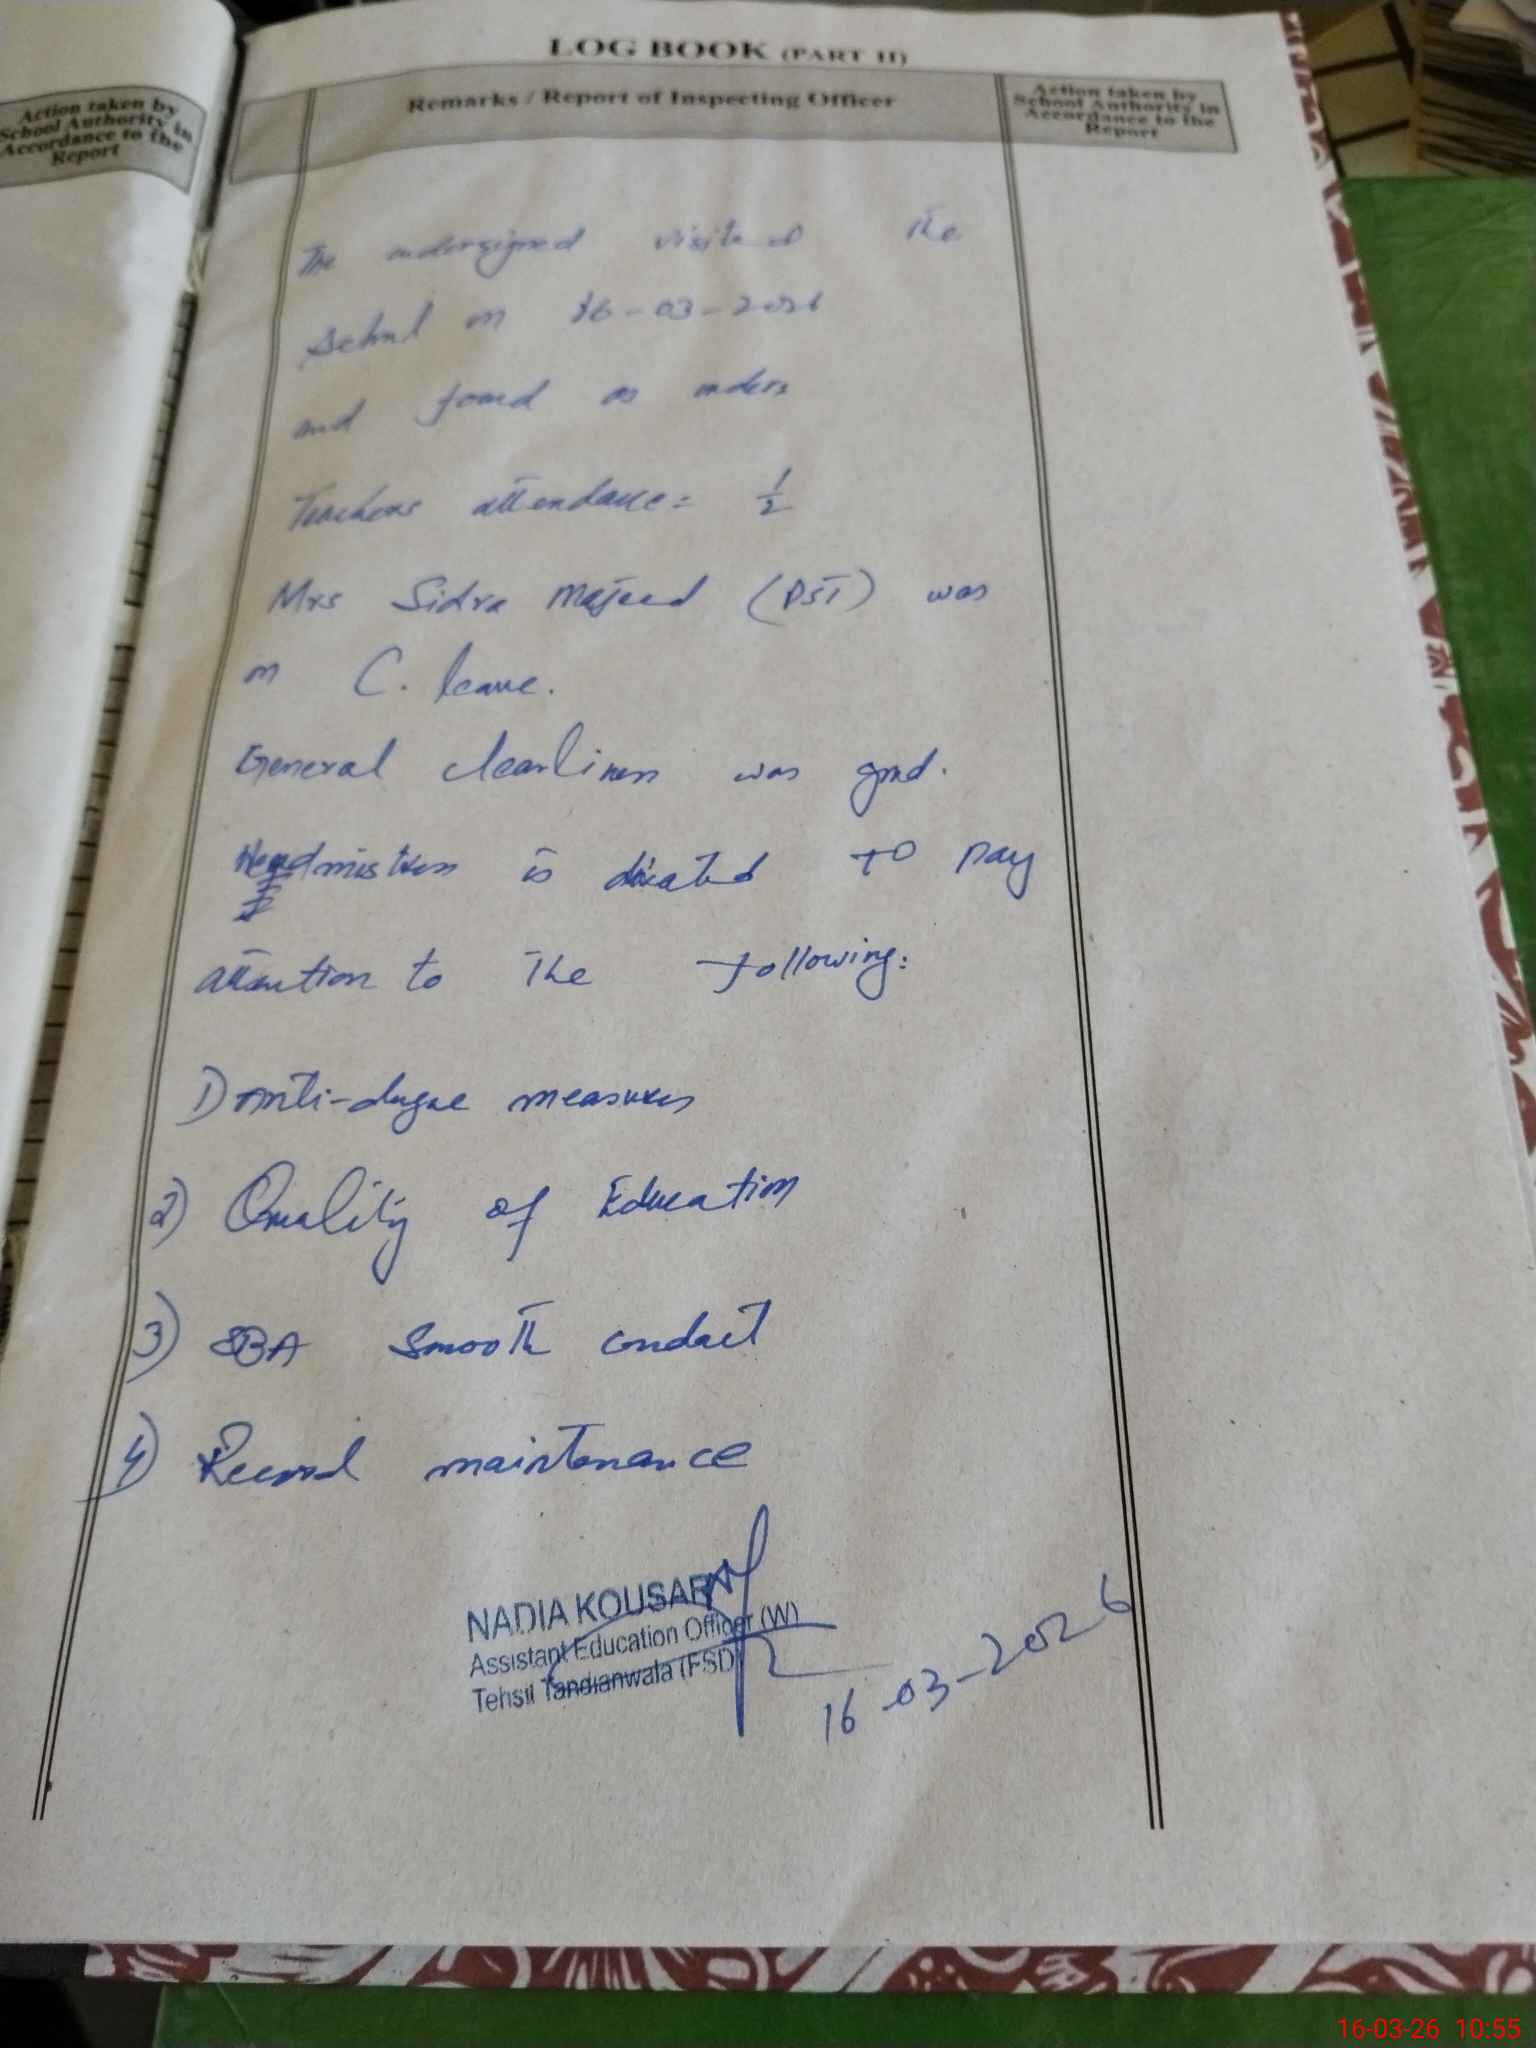 LOG BOOK (PART II)
Action taken by
School Authority in
Accordance to the
Report
Remarks / Report of Inspecting Officer
Action taken by
School Authority in
Accordance to the
Report
The undersigned visited the
School on 16-03-2026
and found as unders
Teachers attendance = 1/2
Mrs Sidra Majeed (PST) was
on C. leave.
General cleanliness was good.
Headmistress is directed to pay
attention to the following:
1) Anti-dngue measures
2) Quality of Education
3) SBA smooth conduct
4) Record maintenance
NADIA KOUSAR
Assistant Education Officer (W)
Tehsil Tandianwala (FSD)
16-03-2026
16-03-26 10:55